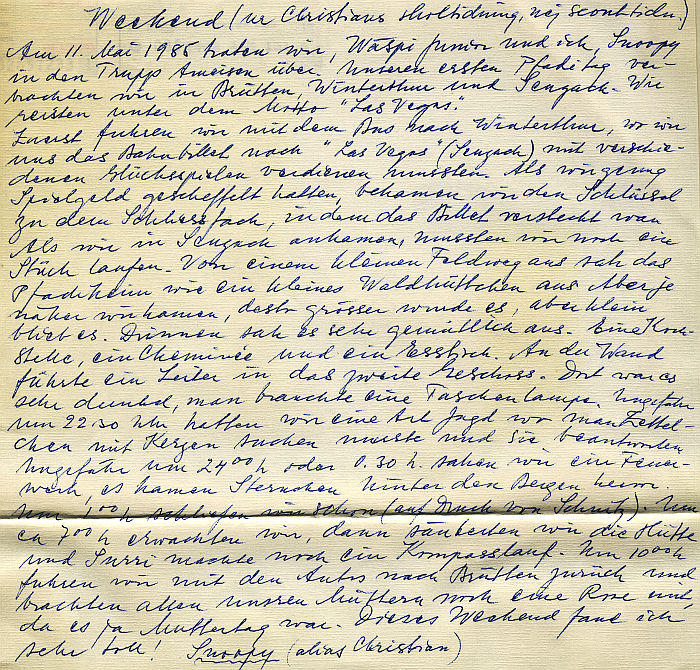 Weekend (ur Christians skoltidning, nej scouttidn.)
Am 11. Mai 1985 traten wir, Wäspi Junior und ich, Snoopy
in den Trupp Ameisen über. Unseren ersten Pfaditag ver-
brachten wir in Brütten, Winterthur und Seuzach. Wir
reisten unter dem Motto "Las Vegas".
Zuerst fuhren wir mit dem Bus nach Winterthur, wo wir
uns das Bahnbillet nach "Las Vegas" (Seuzach) mit verschie-
denen Glücksspielen verdienen mussten. Als wir genug
Spielgeld gescheffelt hatten, bekamen wir den Schlüssel
zu dem Schliessfach, in dem das Billet versteckt war.
Als wir in Seuzach ankamen, mussten wir noch ein
Stück laufen. Von einem kleinen Feldweg aus sah das
Pfadiheim wie ein kleines Waldhüttchen aus. Aber je
näher wir kamen, desto grösser wurde es, aber klein
blieb es. Drinnen sah es sehr gemütlich aus. Eine Koch-
stelle, ein Cheminée und ein Esstisch. An der Wand
führte ein Leiter in das zweite Geschoss. Dort war es
sehr dunkel, man brauchte eine Taschenlampe. Ungefähr
um 22.30 Uhr hatten wir eine Art Jagd wo man Zettel-
chen mit Kerzen suchen musste und sie beantworten.
Ungefähr um 24⁰⁰ h oder 0.30 h. sahen wir ein Feuer-
werk, es kamen Sternchen hinter den Bergen hervor.
Um 1⁰⁰ h schliefen wir schon (auf Druck von Schnitz). Um
ca 7⁰⁰ h erwachten wir, dann säuberten wir die Hütte
und Surri machte noch ein Kompasslauf. Um 10⁰⁰ h
fuhren wir mit den Autos nach Brütten zurück und
brachten allen unseren Müttern noch eine Rose mit,
da es ja Muttertag war. Dieses Weekend fand ich
sehr toll! Snoopy (alias Christian)